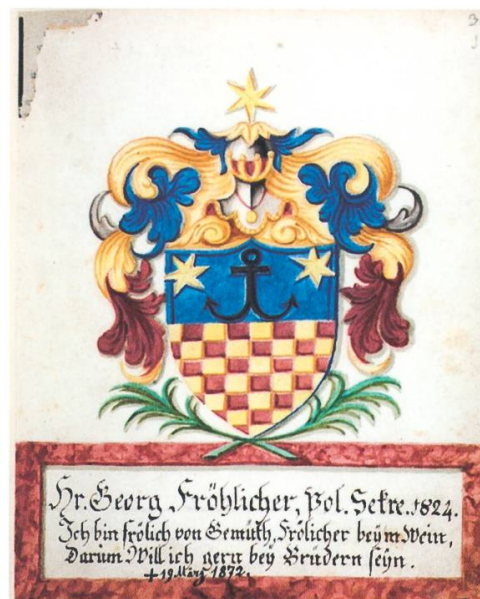 3
Hr. Georg Fröhlicher, Pol. Sekre. 1824.
Ich bin frölich von Gemüth, Frölicher beÿm Wein,
Darum Will ich gern beÿ Brüdern seÿn.
✝ 19 März 1872.